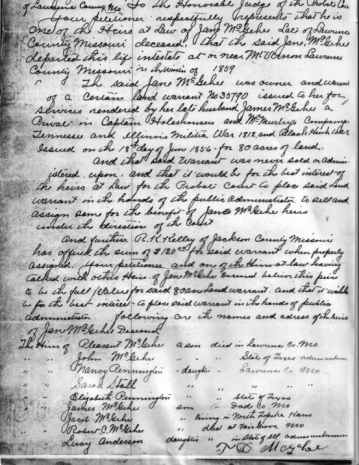 of Lawrence County Mo. To the Honorable Judge of the Probate Court
Your petitioner respectfully represents that he is
one of the Heirs at Law of Jane McGehe Late of Lawrence
County Missouri deceased, that the said Jane McGehe
departed this life intestate at or near Mt Vernon Lawrence
County Missouri in the winter of 1859
The said Jane McGehe was owner and
of a certain land warrant No 35790 issued to her for
services rendered by her late husband James McGehe a
Private in Captain Holshousen and McMurtrys Company
Tennessee and Illinois Militia War 1812 and Black Hawk War
Issued on the 18th day of June 1856 for 80 acres of land.
And that said warrant was never sold or admin
istered upon and that it would be for the best interest of
the heirs at Law for the Probate Court to place said land
warrant in the hands of the public Administrator to sell and
assign same for the benefit of Jane McGehe heirs
under the direction of the Court
And further R. H. Kelley of Jackson County Missouri
has offered the sum of $ for said warrant when properly
assigned. Your petitioner and one of the Heirs at law having
talked with other Heirs of Jane McGehe deceased believes this price
to be the full value for said 80 acre land warrant and that it will
be for the best interest to place said warrant in the hands of public
administrator following are the names and adress of the heirs
of Jane McGehe Deceased
The Heirs of Pleasant McGehe a son died in Lawrence Co Mo
" " John McGehe " " " State of Texas
" " Nancy Pennington daughter " Lawrence Co Mo
" " Sarah Stall " " " "
" " Elizabeth Pennington " " State of Texas
" " James McGehe son " Dade Co Mo
" " Jacob McGehe " living in
" " Robert C. McGehe " died at Mo
" " Levay Anderson daughter " in State of
McGehe